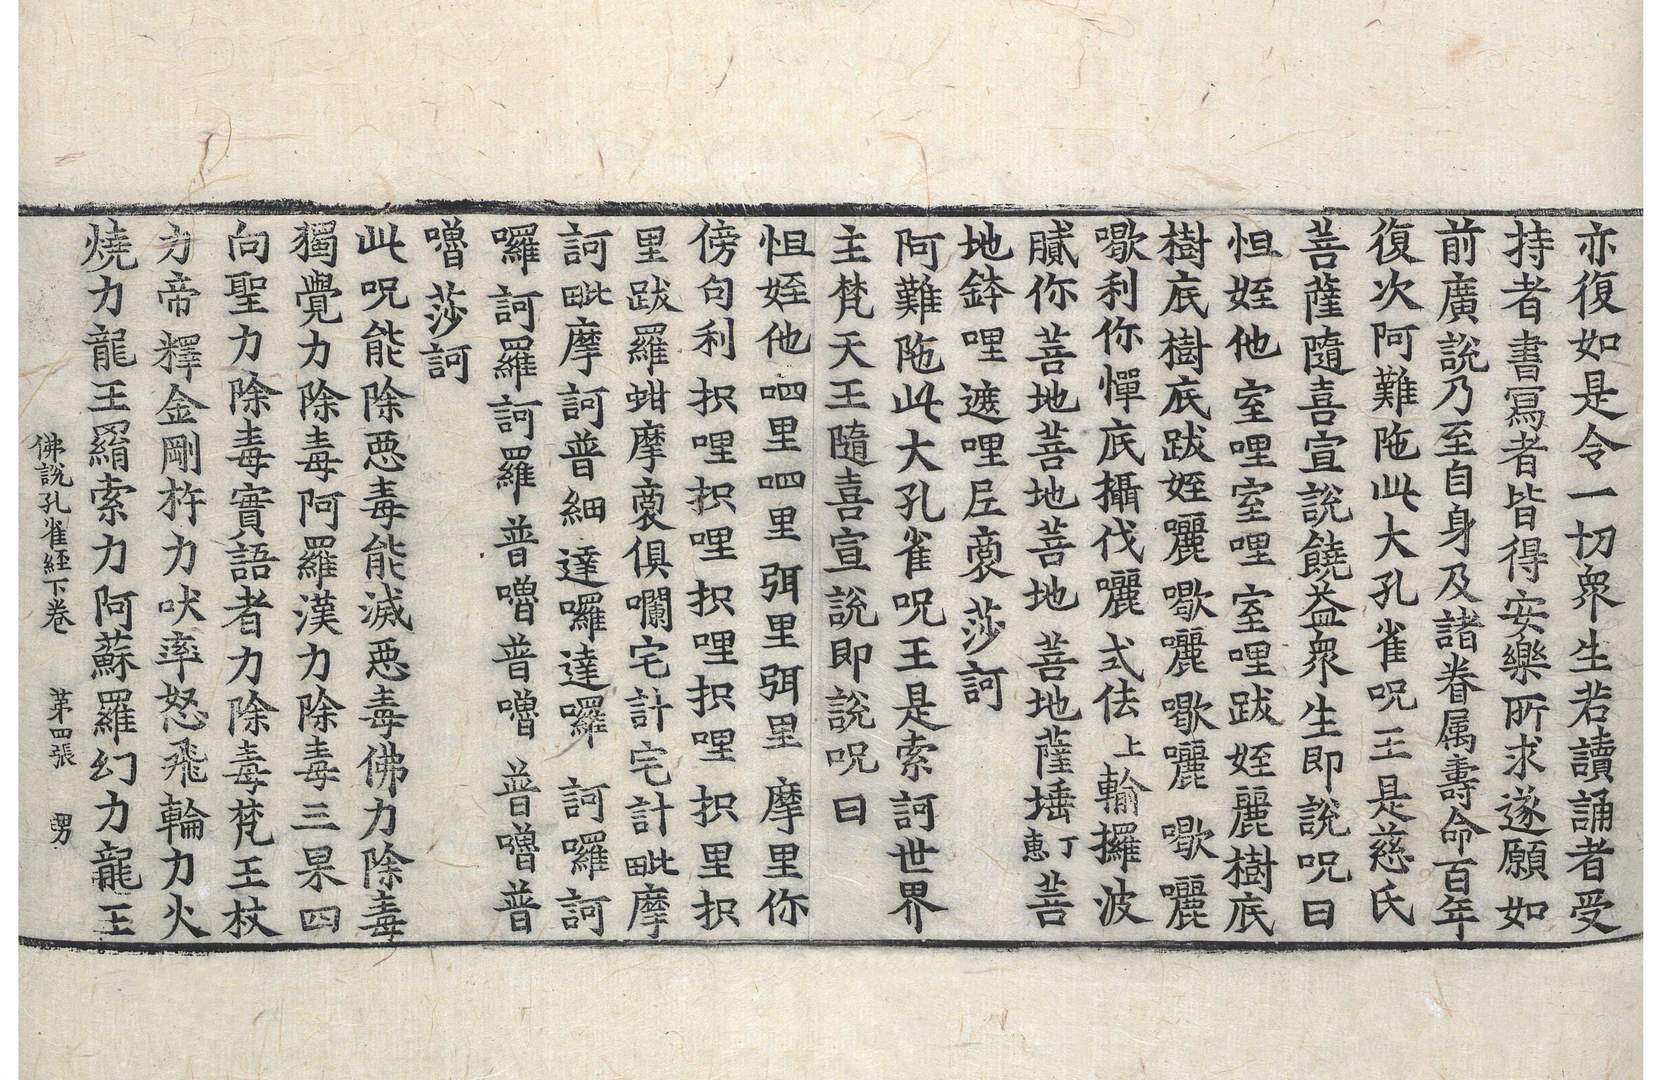 亦復如是令一切衆生若讀誦者受
持者書寫者皆得安樂所求遂願如
前廣說乃至自身及諸眷属壽命百年
復次阿難陁此大孔雀呪王是慈氏
菩薩隨喜宣說饒益衆生即說呪曰
怛姪他室哩室哩室哩跋姪麗樹底
樹底樹底跋姪曬㘑曬㘑曬㘑曬
㘑利你憚底攝伐曬 式佉上輸攞波
膩你 菩地菩地菩地 菩地薩埵丁惠菩
地鉢哩遮哩𡱝裒莎訶
阿難陁此大孔雀呪王是索訶世界
主梵天王隨喜宣說即說呪曰
怛姪他 呬里呬里弭里弭里 摩里你
傍句利 抧哩抧哩抧哩抧哩抧里抧
里跋羅蚶摩裒俱囒宅計宅計毗摩
訶毗摩訶普細 達囉達囉 訶囉訶
囉訶羅訶羅普嚕普嚕 普嚕普
嚕莎訶
此呪能除惡毒能滅惡毒佛力除毒
獨覺力除毒阿羅漢力除毒三果四
向聖力除毒實語者力除毒梵王杖
力帝釋金剛杵力吠率怒飛輪力火
燒力龍王羂索力阿蘇羅幻力龍王
佛說孔雀経下卷 第四張 男